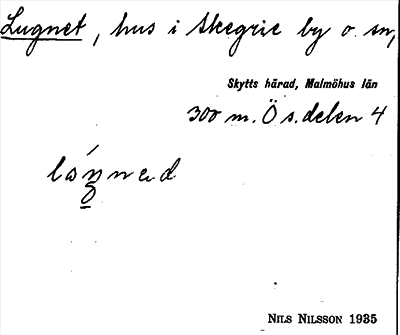 Lugnet, hus i Skegrie by o. sn,
Skytts härad, Malmöhus län
300 m. Ö s. delen 4
NILS NILSSON 1935